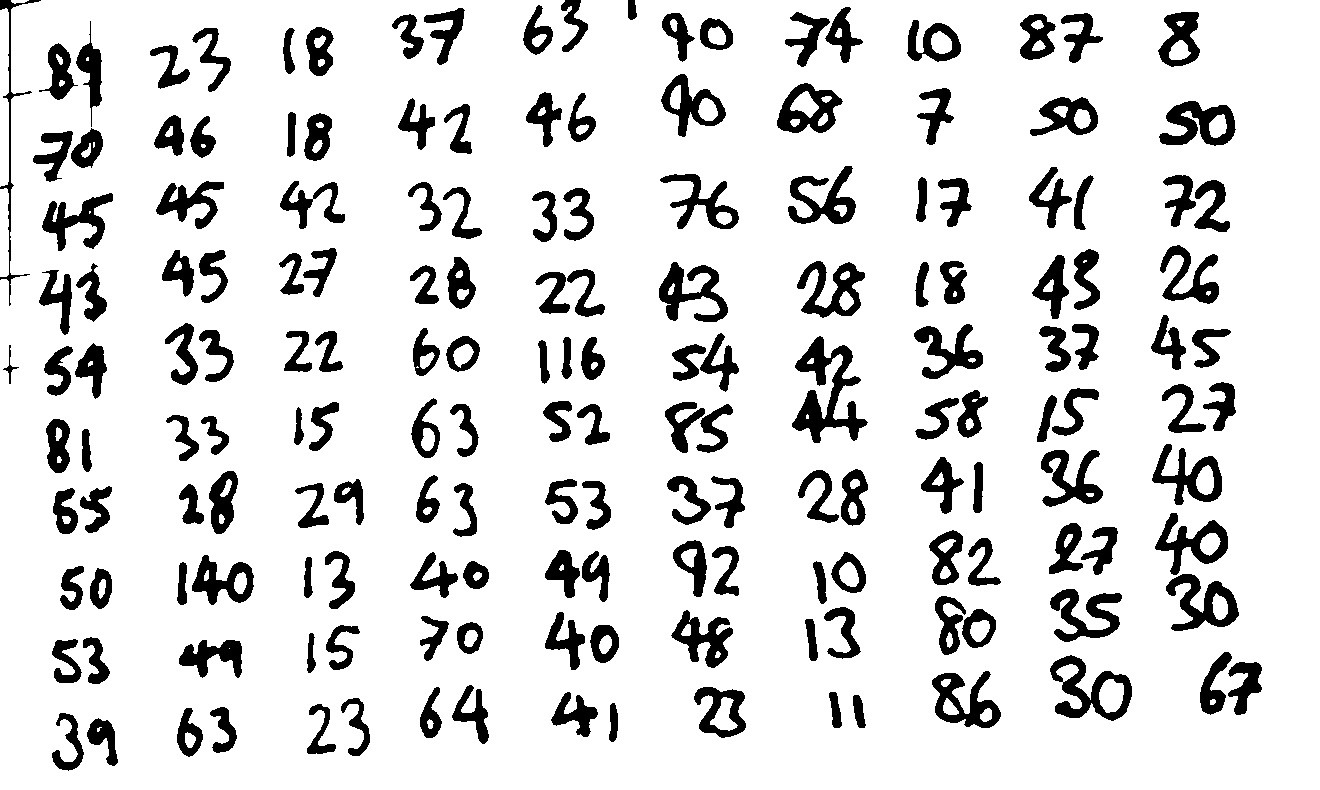 89 23 18 37 63 90 74 10 87 8
70 46 18 42 46 90 68 7 50 50
45 45 42 32 33 76 56 17 41 72
43 45 27 28 22 43 28 18 43 26
54 33 22 60 116 54 42 36 37 45
81 33 15 63 52 85 44 58 15 27
55 28 29 63 53 37 28 41 36 40
50 140 13 40 49 92 10 82 27 40
53 49 15 70 40 48 13 80 35 30
39 63 23 64 41 23 11 86 30 67